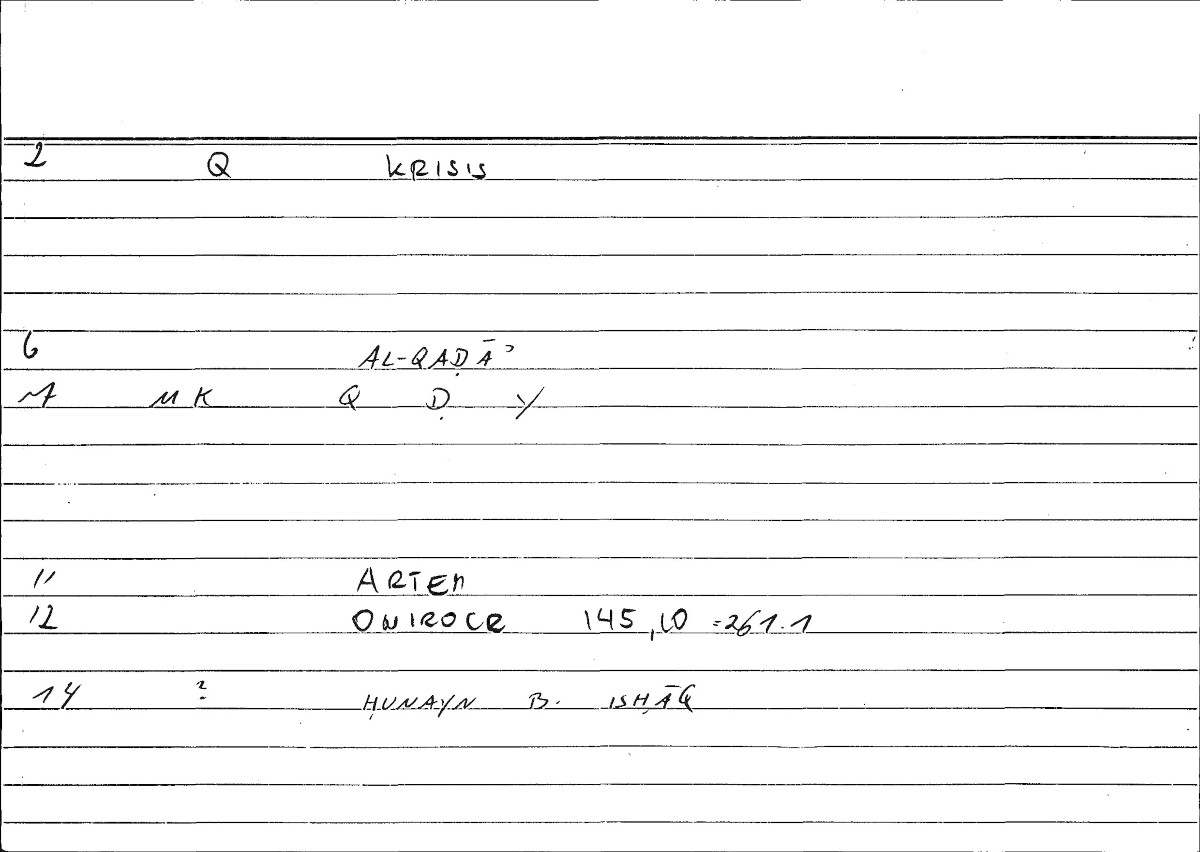 2 Q KRISIS
6 AL-QAḌĀʾ
7 MK Q Ḍ Y
11 ARTEM
12 ONIROCR 145,10 =261.1
14 ? ḤUNAYN B. ISḤĀQ